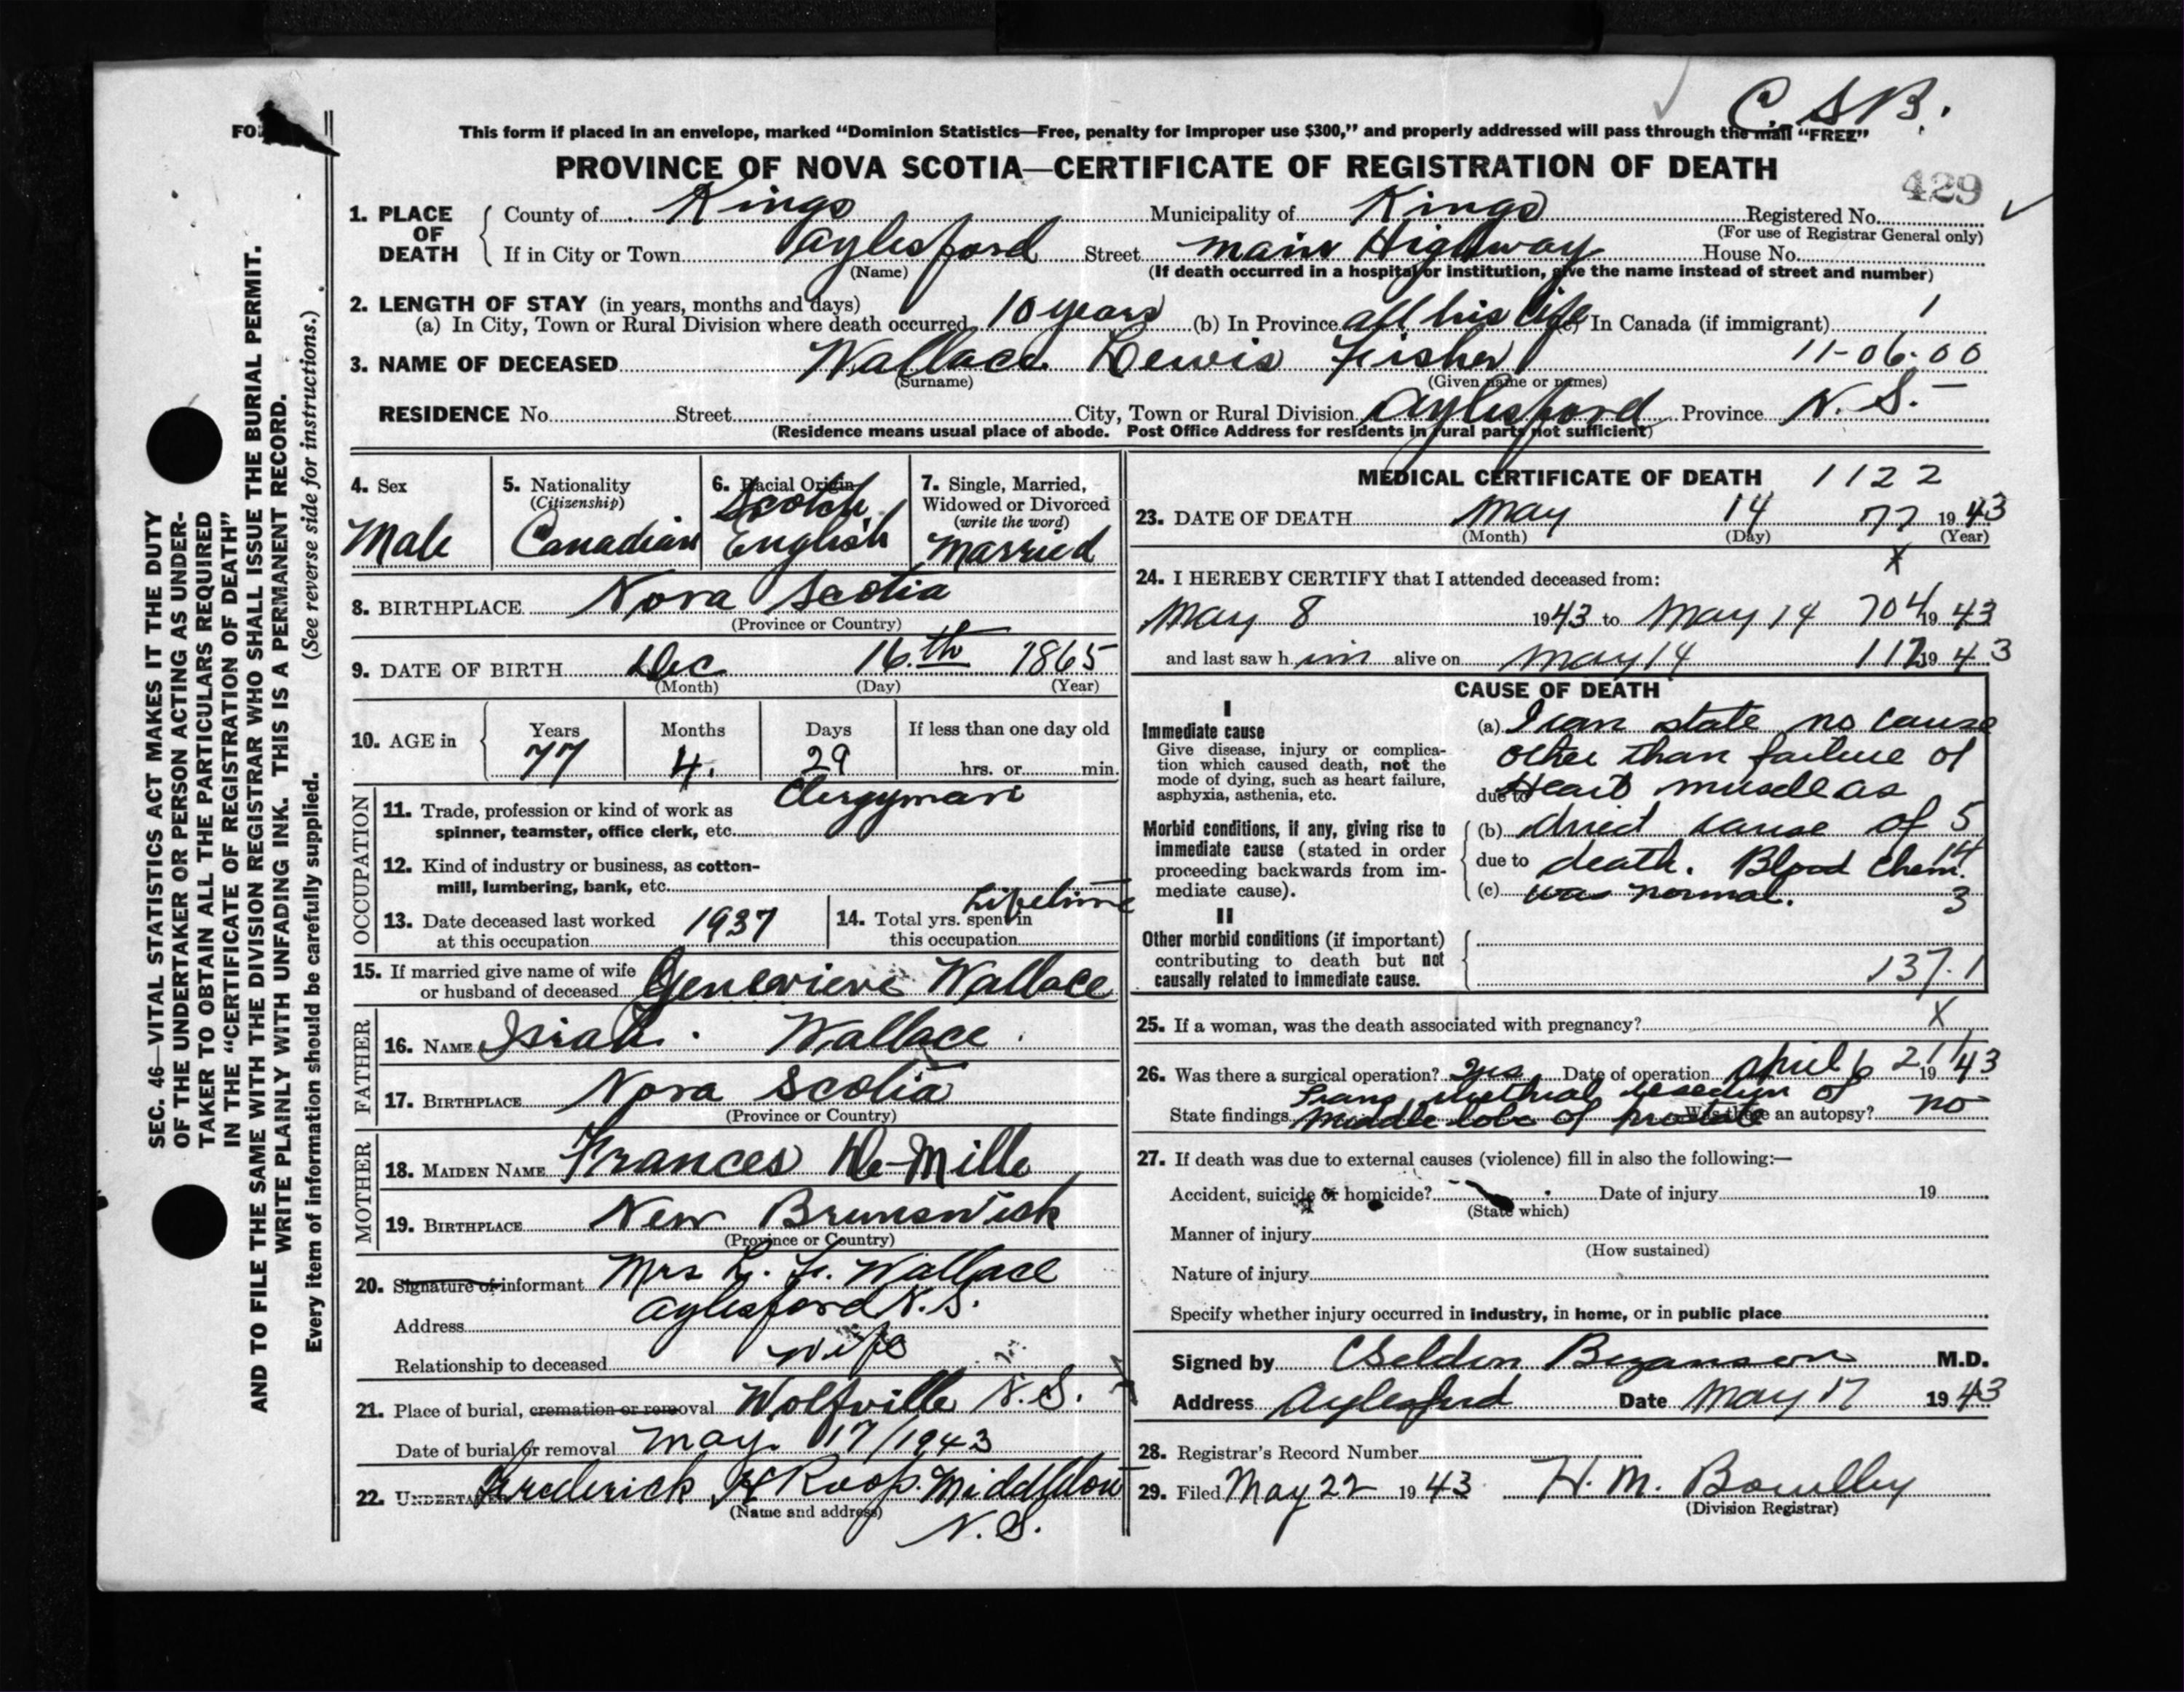 C. S. B.
This form if placed in an envelope, marked "Dominion Statistics—Free, penalty for improper use $300," and properly addressed will pass through the mail "FREE"
PROVINCE OF NOVA SCOTIA—CERTIFICATE OF REGISTRATION OF DEATH
429
1. PLACE OF DEATH County of Kings Municipality of Kings Registered No.
(For use of Registrar General only)
If in City or Town Aylesford Street Main Highway House No.
(Name) (If death occurred in a hospital or institution, give the name instead of street and number)
2. LENGTH OF STAY (in years, months and days) 1
(a) In City, Town or Rural Division where death occurred 10 years (b) In Province all his life (c) In Canada (if immigrant)
3. NAME OF DECEASED Wallace Lewis Fisher 11-06-00
(Surname) (Given name or names)
RESIDENCE No. Street City, Town or Rural Division Aylesford Province N. S.
(Residence means usual place of abode. Post Office Address for residents in rural parts not sufficient)
4. Sex Male
5. Nationality (Citizenship) Canadian
6. Racial Origin Scotch English
7. Single, Married, Widowed or Divorced (write the word) Married
8. BIRTHPLACE Nova Scotia
(Province or Country)
9. DATE OF BIRTH Dec 16th 1865
(Month) (Day) (Year)
10. AGE in Years 77 Months 4. Days 29 If less than one day old
hrs. or min.
OCCUPATION
11. Trade, profession or kind of work as Clergyman
spinner, teamster, office clerk, etc.
12. Kind of industry or business, as cotton-
mill, lumbering, bank, etc.
13. Date deceased last worked at this occupation 1937
14. Total yrs. spent in this occupation Lifetime
15. If married give name of wife or husband of deceased Genevieve Wallace
FATHER
16. NAME Isiah Wallace
17. BIRTHPLACE Nova Scotia
(Province or Country)
MOTHER
18. MAIDEN NAME Frances De-Mille
19. BIRTHPLACE New Brunswick
(Province or Country)
20. Signature of informant Mrs L. F. Wallace
Address Aylesford N. S.
Relationship to deceased wife
21. Place of burial, cremation or removal Wolfville N. S.
Date of burial or removal May 17/1943
22. UNDERTAKER Frederick H Roop. Middleton
(Name and address) N. S.
MEDICAL CERTIFICATE OF DEATH 1122
23. DATE OF DEATH May 14 77 1943
(Month) (Day) (Year)
X
24. I HEREBY CERTIFY that I attended deceased from:
May 8 1943 to May 14 704 1943
and last saw him alive on May 14 112 1943
CAUSE OF DEATH
I
Immediate cause
Give disease, injury or complica-
tion which caused death, not the
mode of dying, such as heart failure,
asphyxia, asthenia, etc.
(a) I can state no cause
other than failure of
due to Heart muscle as
Morbid conditions, if any, giving rise to
immediate cause (stated in order
proceeding backwards from im-
mediate cause).
(b) cause of 5
due to death. Blood Chem. 14
(c) was normal. 3
II
Other morbid conditions (if important)
contributing to death but not
causally related to immediate cause.
137.1
25. If a woman, was the death associated with pregnancy? X
26. Was there a surgical operation? Yes Date of operation April 6 21 1943
Trans urethral resection of
State findings Middle lobe of prostate Was there an autopsy? no
27. If death was due to external causes (violence) fill in also the following:—
Accident, suicide or homicide? Date of injury 19
(State which)
Manner of injury
(How sustained)
Nature of injury
Specify whether injury occurred in industry, in home, or in public place
Signed by C Seldon Bezanson M.D.
Address Aylesford Date May 17 1943
28. Registrar's Record Number
29. Filed May 22 1943 H. M.
(Division Registrar)
SEC. 46—VITAL STATISTICS ACT MAKES IT THE DUTY
OF THE UNDERTAKER OR PERSON ACTING AS UNDER-
TAKER TO OBTAIN ALL THE PARTICULARS REQUIRED
IN THE "CERTIFICATE OF REGISTRATION OF DEATH"
AND TO FILE THE SAME WITH THE DIVISION REGISTRAR WHO SHALL ISSUE THE BURIAL PERMIT.
WRITE PLAINLY WITH UNFADING INK. THIS IS A PERMANENT RECORD.
Every item of information should be carefully supplied. (See reverse side for instructions.)